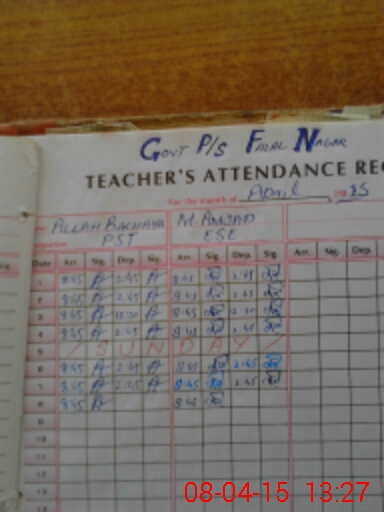 GOVT P/S FAZAL NAGAR
TEACHER'S ATTENDANCE RE
For the month of April 20 15
ALLAH BACHAYA M. AMJAD
PST ESE
Sig. Date Arr. Sig. Dep. Sig. Arr. Sig. Dep. Sig. Arr. Sig. Dep.
1 8:45 2.45 8:45 2.45
2 8:45 2.45 8:45 2.45
3 8:45 12.30 8:45 12.30
4 8:45 2.45 8:45 2.45
5 / S U N D A Y /
6 8:45 2.45 8:45 2.45
7 8:45 2.45 8:45 2.45
8 8:45 8:45
9
10
11
12
13
08-04-15 13:27